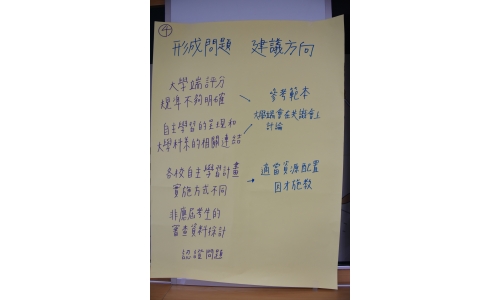 ④
形成問題 建議方向
大學端評分
標準不夠明確
自主學習的呈現和
大學科系的相關連結
各校自主學習計畫
實施方式不同
非應屆考生的
審查資料採計
認證問題
參考範本
大學端會在共識會上
討論
適當資源配置
因才施教